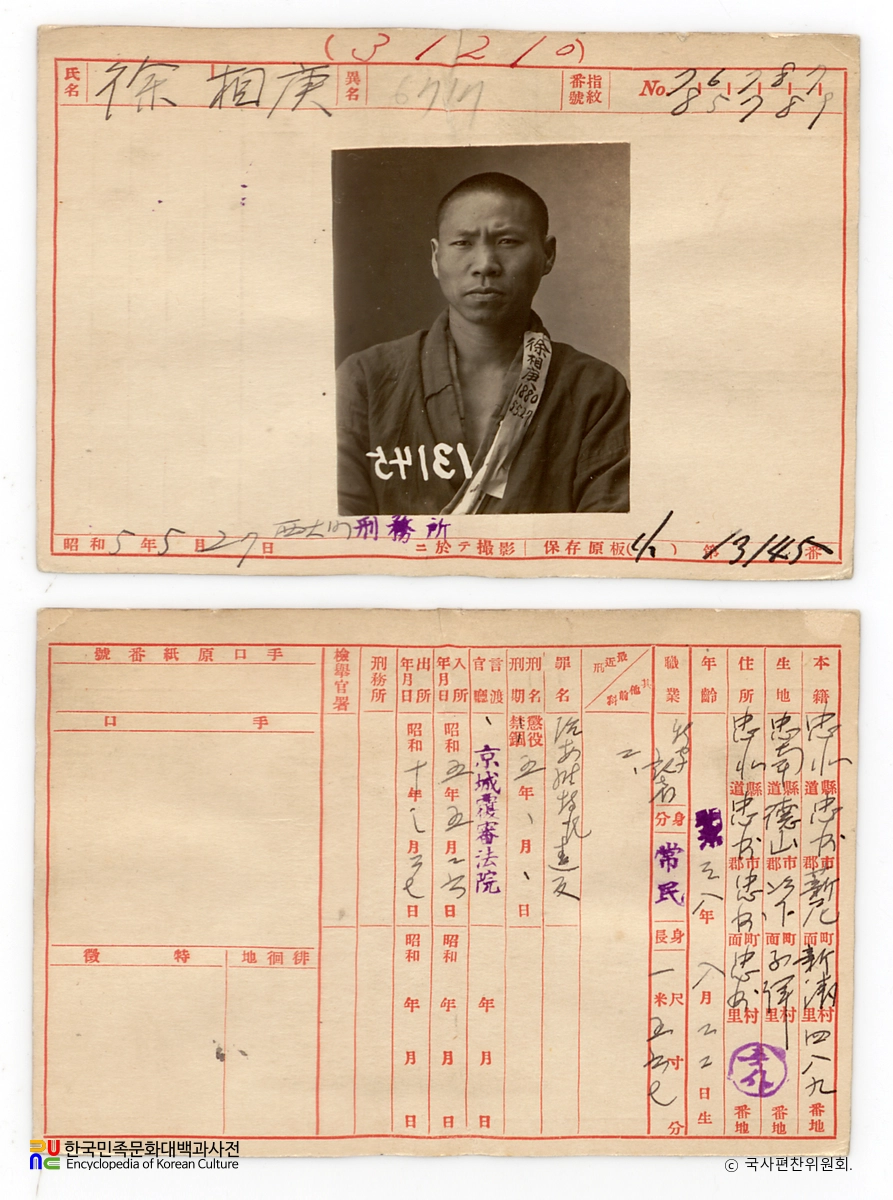 (3 1 2 1 0)
氏名 徐相庚 異名 6717 指紋番號 No 7-6-7-8-7
8 5 7 8 9
徐相庚
1880
13145
昭和5年5月27日 西大門刑務所ニ於テ撮影 保存原板( ) 第13145番
本籍 忠北道縣忠州郡市薪尼面町新淸里村四八九番地
生地 忠南道縣德山郡市 面町 里村 番地
住所 忠北道縣忠州郡市忠州面町忠州里村 番地
年齡 八年八月二二日生
職業 記者 身分 常民 身長 一米尺五 寸 七分
最近刑 其他前科
罪名 治安維持法違反
刑名刑期 懲役禁錮五年、月、日
言渡官廳 京城覆審法院 年月日
入所年月日 昭和五年五月 日 昭和 年 月 日
出所年月日 昭和十年 月 七日 昭和 年 月 日
刑務所
檢擧官署
手口原紙番號
手口
徘徊地
特徵
한국민족문화대백과사전
Encyclopedia of Korean Culture
ⓒ 국사편찬위원회.